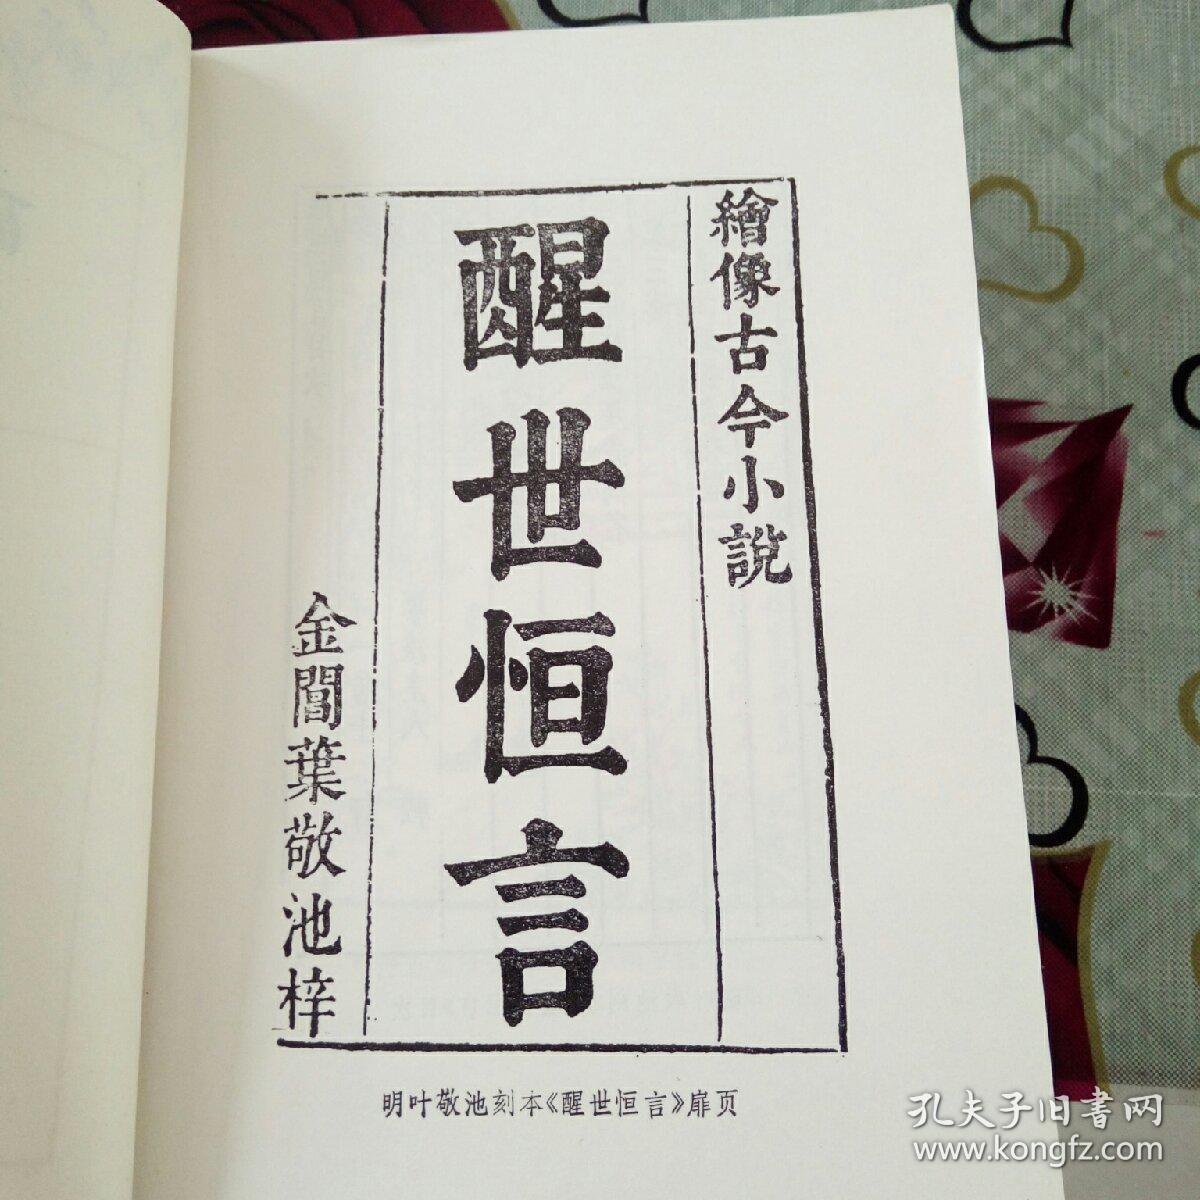 繪像古今小說
醒世恒言
金閶葉敬池梓
明叶敬池刻本《醒世恒言》扉页
孔夫子旧书网
www.kongfz.com